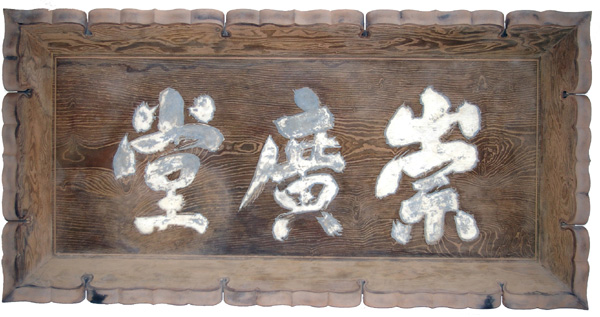 崇廣堂